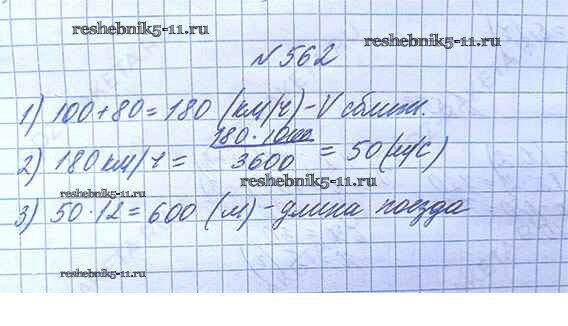 reshebnik5-11.ru
reshebnik5-11.ru
№562
1) 100+80=180 (км/ч)-V сближ.
2) 180км/ч = 180·1000/3600 = 50(м/с)
reshebnik5-11.ru
reshebnik5-11.ru
3) 50·12=600 (м)-длина поезда
reshebnik5-11.ru
reshebnik5-11.ru